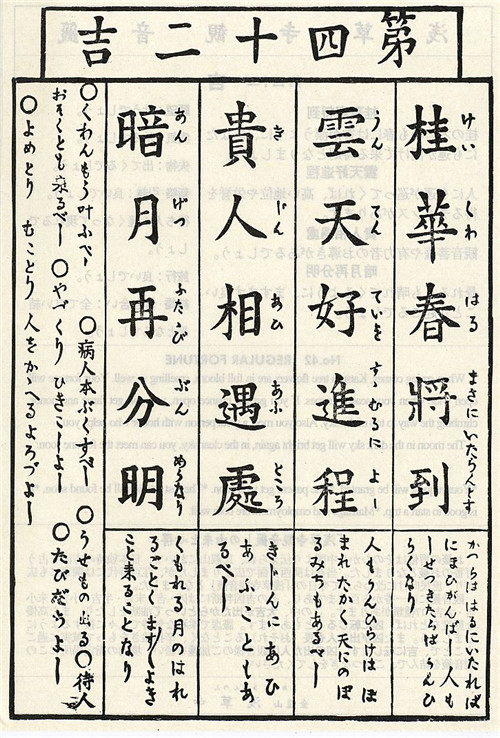 第四十二吉
桂華春將到
けい くわ はる まさにいたらんとす
雲天好進程
うん てん ていを すゝむるに よ
貴人相遇處
き じん あひ あふ ところ
暗月再分明
あん げつ ふたゝび ぶん めうなり
かつらははるにいたれば
人もうんひらけは ほ
まれたかく天にのぼ
るみちもあるべし
きにんにあひ
あふことしあ
るべし
くもれる月のはれ
るごとくますゝよき
こと来ることなり
〇くわんもうけふべし 〇病人本ぶくすべし 〇うせもの出る〇待人
おそくとも来るべし 〇やづくり ひきこしよし 〇たびだちよし
〇よめとり むことり 人をかゝへるよろづよし